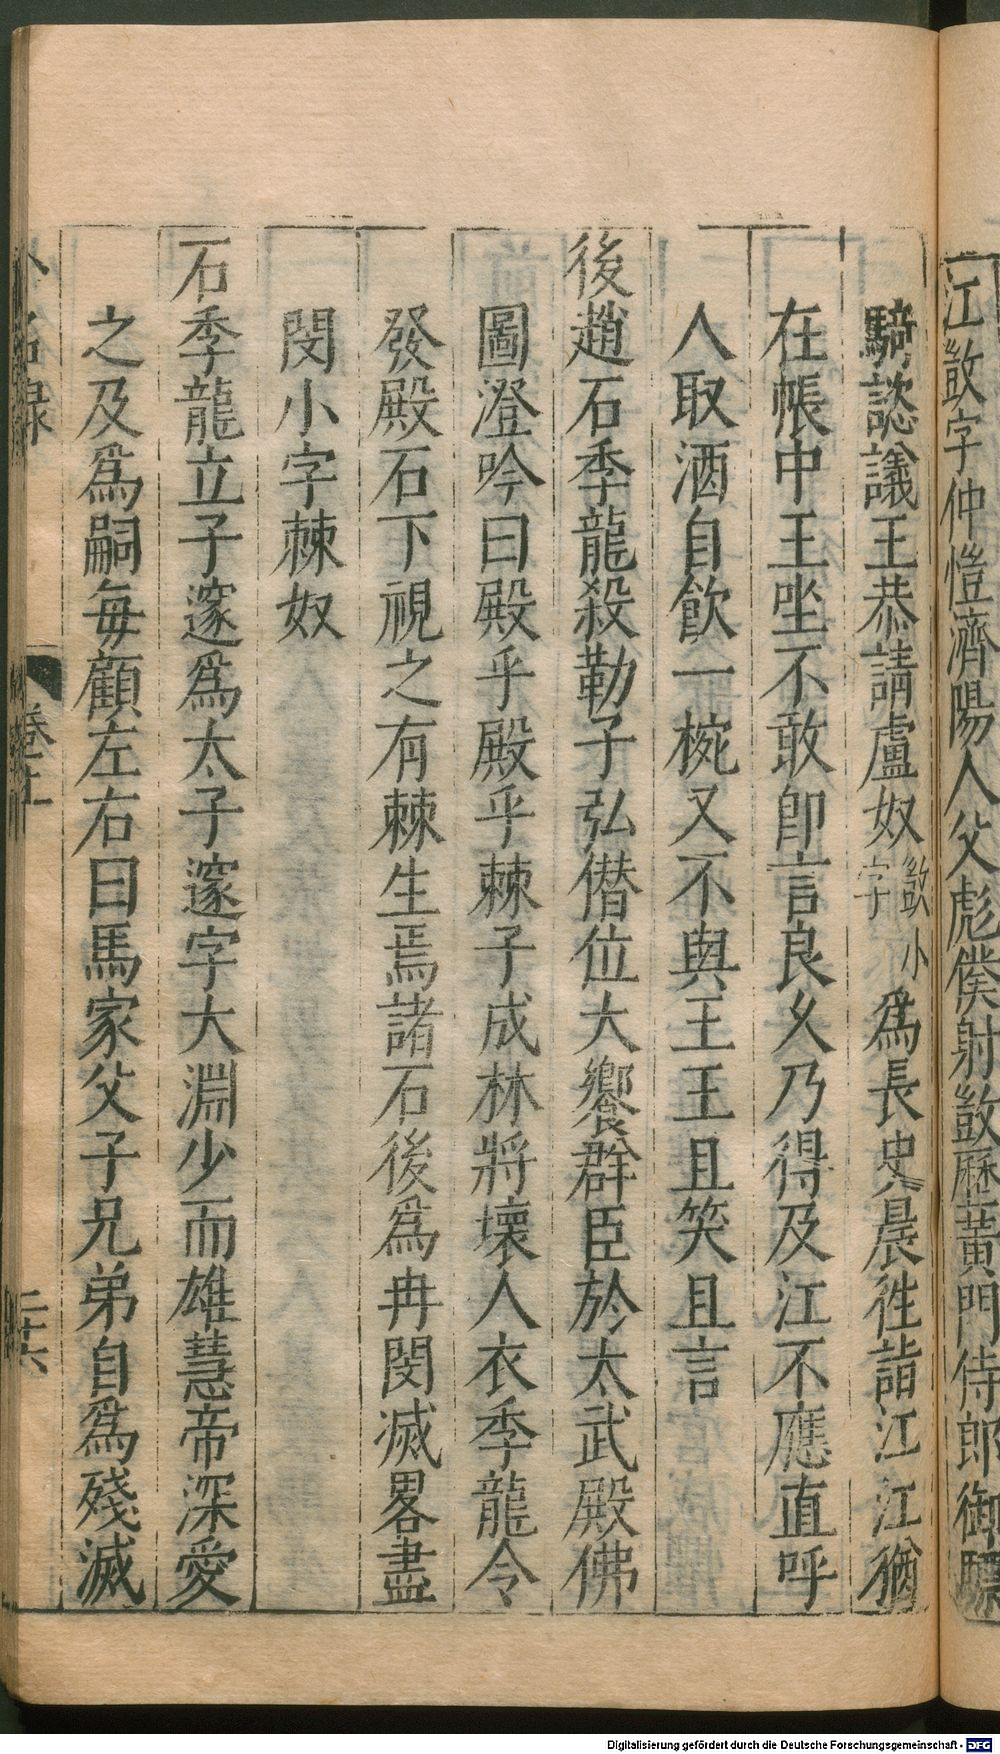 江敳字仲愷濟陽人父彪僕射敳歷黃門侍郎御驃
騎諮議王恭請盧奴敳小字為長史晨徃詣江江猶
在帳中王坐不敢即言良乆乃得及江不應直呼
人取酒自飲一椀又不與王王且笑且言
後趙石季龍殺勒子弘僭位大饗群臣於太武殿佛
圖澄吟曰殿乎殿乎棘子成林將壞人衣季龍令
發殿石下視之有棘生焉諸石後爲冉閔滅畧盡
閔小字棘奴
石季龍立子邃爲太子邃字大淵少而雄慧帝深愛
之及爲嗣每顧左右曰馬家父子兄弟自爲殘滅
小名録 卷十 二十六
Digitalisierung gefördert durch die Deutsche Forschungsgemeinschaft - DFG